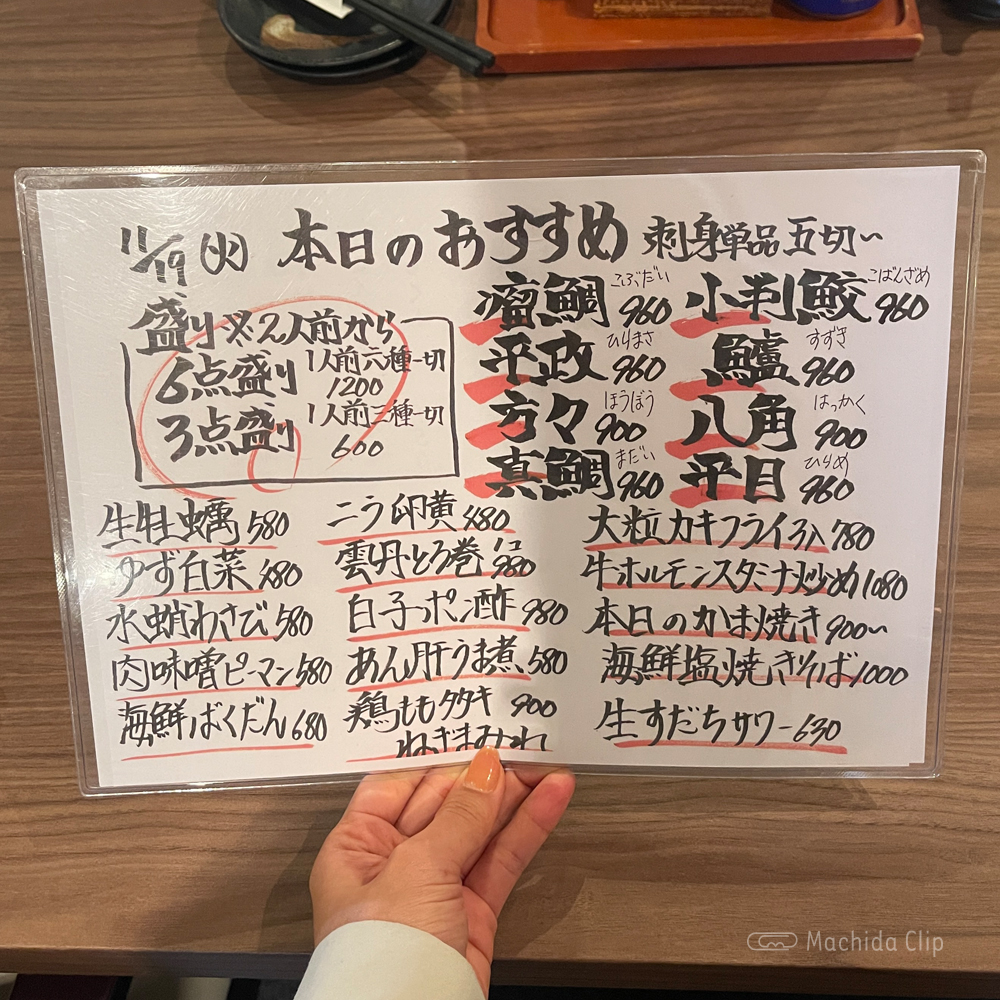 11/19(火) 本日のおすすめ 刺身単品五切~
盛り※2人前から
6点盛り 1人前六種一切 1200
3点盛り 1人前三種一切 600
瘤鯛 こぶだい 960
小判鮫 こばんざめ 960
平政 ひらまさ 960
鱸 すずき 960
方々 ほうぼう 900
八角 はっかく 900
真鯛 まだい 960
平目 ひらめ 960
生牡蠣 580
ゆず白菜 480
水蛸わさび 580
肉味噌ピーマン 580
海鮮ばくだん 680
ニラ卵黄 480
雲丹とろ巻 1コ 980
白子ポン酢 980
あん肝うま煮 580
鶏ももタタキ 900
ねぎまみれ
大粒カキフライ3入 780
牛ホルモンスタミナ炒め 1080
本日のかま焼き 900~
海鮮塩焼きそば 1000
生すだちサワー 630
Machida Clip